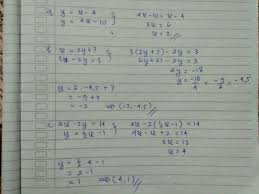 a) y = x - 4 } 4x - 10 = x - 4
y = 4x - 10 3x = 6
x = 2
b) x = 2y + 7 } 3(2y + 7) - 2y = 3
3x - 2y = 3 6y + 21 - 2y = 3
4y = -18
y = -18/4 = -9/2 = -4,5
x = 2 . -4,5 + 7
= -9 + 7
= -2 ⇒ (-2, -4,5)
c) 4x - 2y = 14 } 4x - 2(½x - 1) = 14
y = ½x - 1 4x - x + 2 = 14
3x = 12
x = 4
y = ½ . 4 - 1
= 2 - 1
= 1 ⇒ (4, 1)